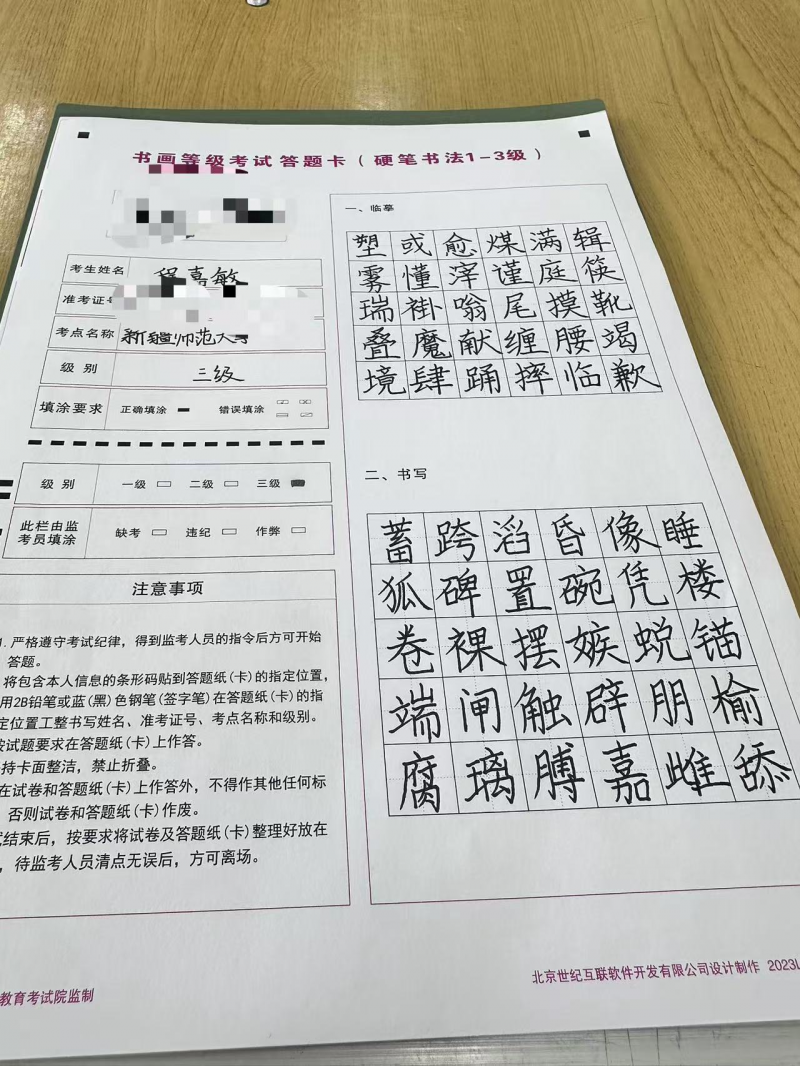 书画等级考试答题卡（硬笔书法1-3级）
考生姓名 程嘉敏
准考证号
考点名称 新疆师范大学
级 别 三级
填涂要求 正确填涂 错误填涂
级 别 一级 二级 三级
此栏由监考员填涂 缺考 违纪 作弊
注意事项
1. 严格遵守考试纪律，得到监考人员的指令后方可开始
答题。
将包含本人信息的条形码贴到答题纸(卡)的指定位置，
用2B铅笔或蓝(黑)色钢笔(签字笔)在答题纸(卡)的指
定位置工整书写姓名、准考证号、考点名称和级别。
按试题要求在答题纸(卡)上作答。
持卡面整洁，禁止折叠。
在试卷和答题纸(卡)上作答外，不得作其他任何标
否则试卷和答题纸(卡)作废。
试结束后，按要求将试卷及答题纸(卡)整理好放在
，待监考人员清点无误后，方可离场。
教育考试院监制
一、临摹
塑或愈煤满辑
雾懂滓谨庭筷
瑞褂嗡尾摸靴
叠魔献缠腰竭
境肆踊摔临歉
二、书写
蓄跨滔昏像睡
狐碑置碗凭楼
卷裸摆嫉蜕锚
端闸触辟朋榆
腐璃膊嘉雌舔
北京世纪互联软件开发有限公司设计制作 2023